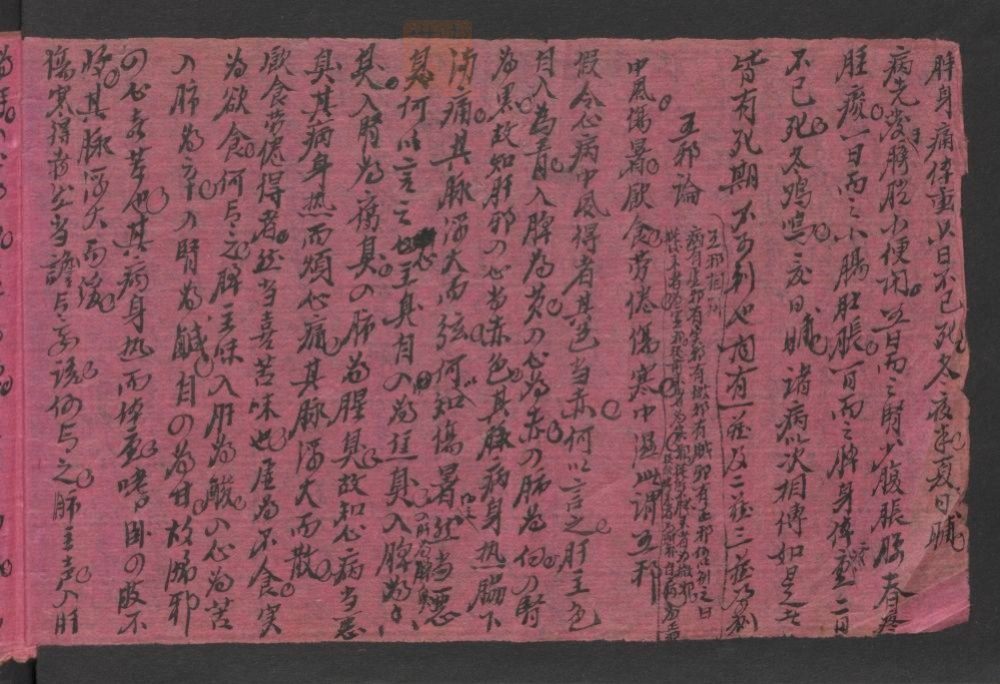 胖身痛体重六日不已死冬夜半夏日晡
病先发膀胱小便闭五日而之肾少腹胀腰脊疼
胫痠一日而之小肠肚胀一日而之脾身体重二日
不已死冬鸡鸣夏日晡诸病以次相传如是者
皆有死期不可刺也间有一藏及二藏三藏乃刺
五邪论
五邪相
病有虚邪有实邪有微邪有贼邪有正邪何以别之曰
中风伤暑飲食劳倦伤寒中湿此谓五邪
假令心病中风得者其色当赤何以言之肝主色
自入为青入脾为黄入心为赤入肺为白入腎
为黑故知肝邪入心当赤色其脉病身热脇下
满痛其脉浮大而弦何知傷暑然当恶
臭何以言之心主臭自入为焦臭入脾为
臭入腎为腐臭入肺为腥臭故知心病当恶
臭其病身热而煩心痛其脉浮大而散
飲食劳倦得者然当喜苦味也虚为不食实
为欲食何以言之脾主味入肝为酸入心为苦
入肺为辛入腎为鹹自入为甘故脾邪
入心喜苦也其病身热而体重嗜卧四肢不
收其脉浮大而缓
傷寒得者然当譫言妄语何以言之肺主声入肝